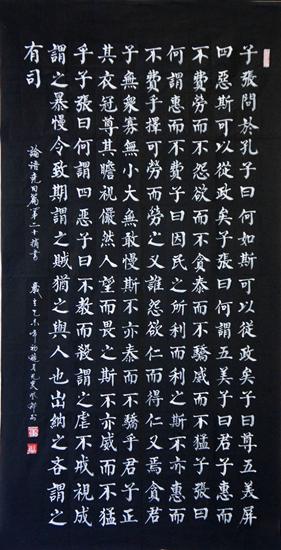 子張問於孔子曰何如斯可以從政矣子曰尊五美屏
四惡斯可以從政矣子張曰何謂五美子曰君子惠而
不費勞而不怨欲而不貪泰而不驕威而不猛子張曰
何謂惠而不費子曰因民之所利而利之斯不亦惠而
不費乎擇可勞而勞之又誰怨欲仁而得仁又焉貪君
子無衆寡無小大無敢慢斯不亦泰而不驕乎君子正
其衣冠尊其瞻視儼然人望而畏之斯不亦威而不猛
乎子張曰何謂四惡子曰不教而殺謂之虐不戒視成
謂之暴慢令致期謂之賊猶之與人也出納之吝謂之
有司
論語堯曰篇第二十摘書
乙未年初